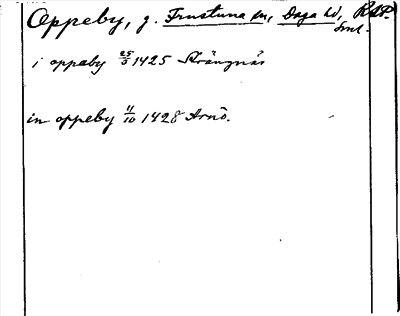 Oppeby, g. Frustuna sn, Daga hd, RAP.
Sml.
i oppeby 25/3 1425 Strängnäs
in oppeby 11/10 1428 Arnö.